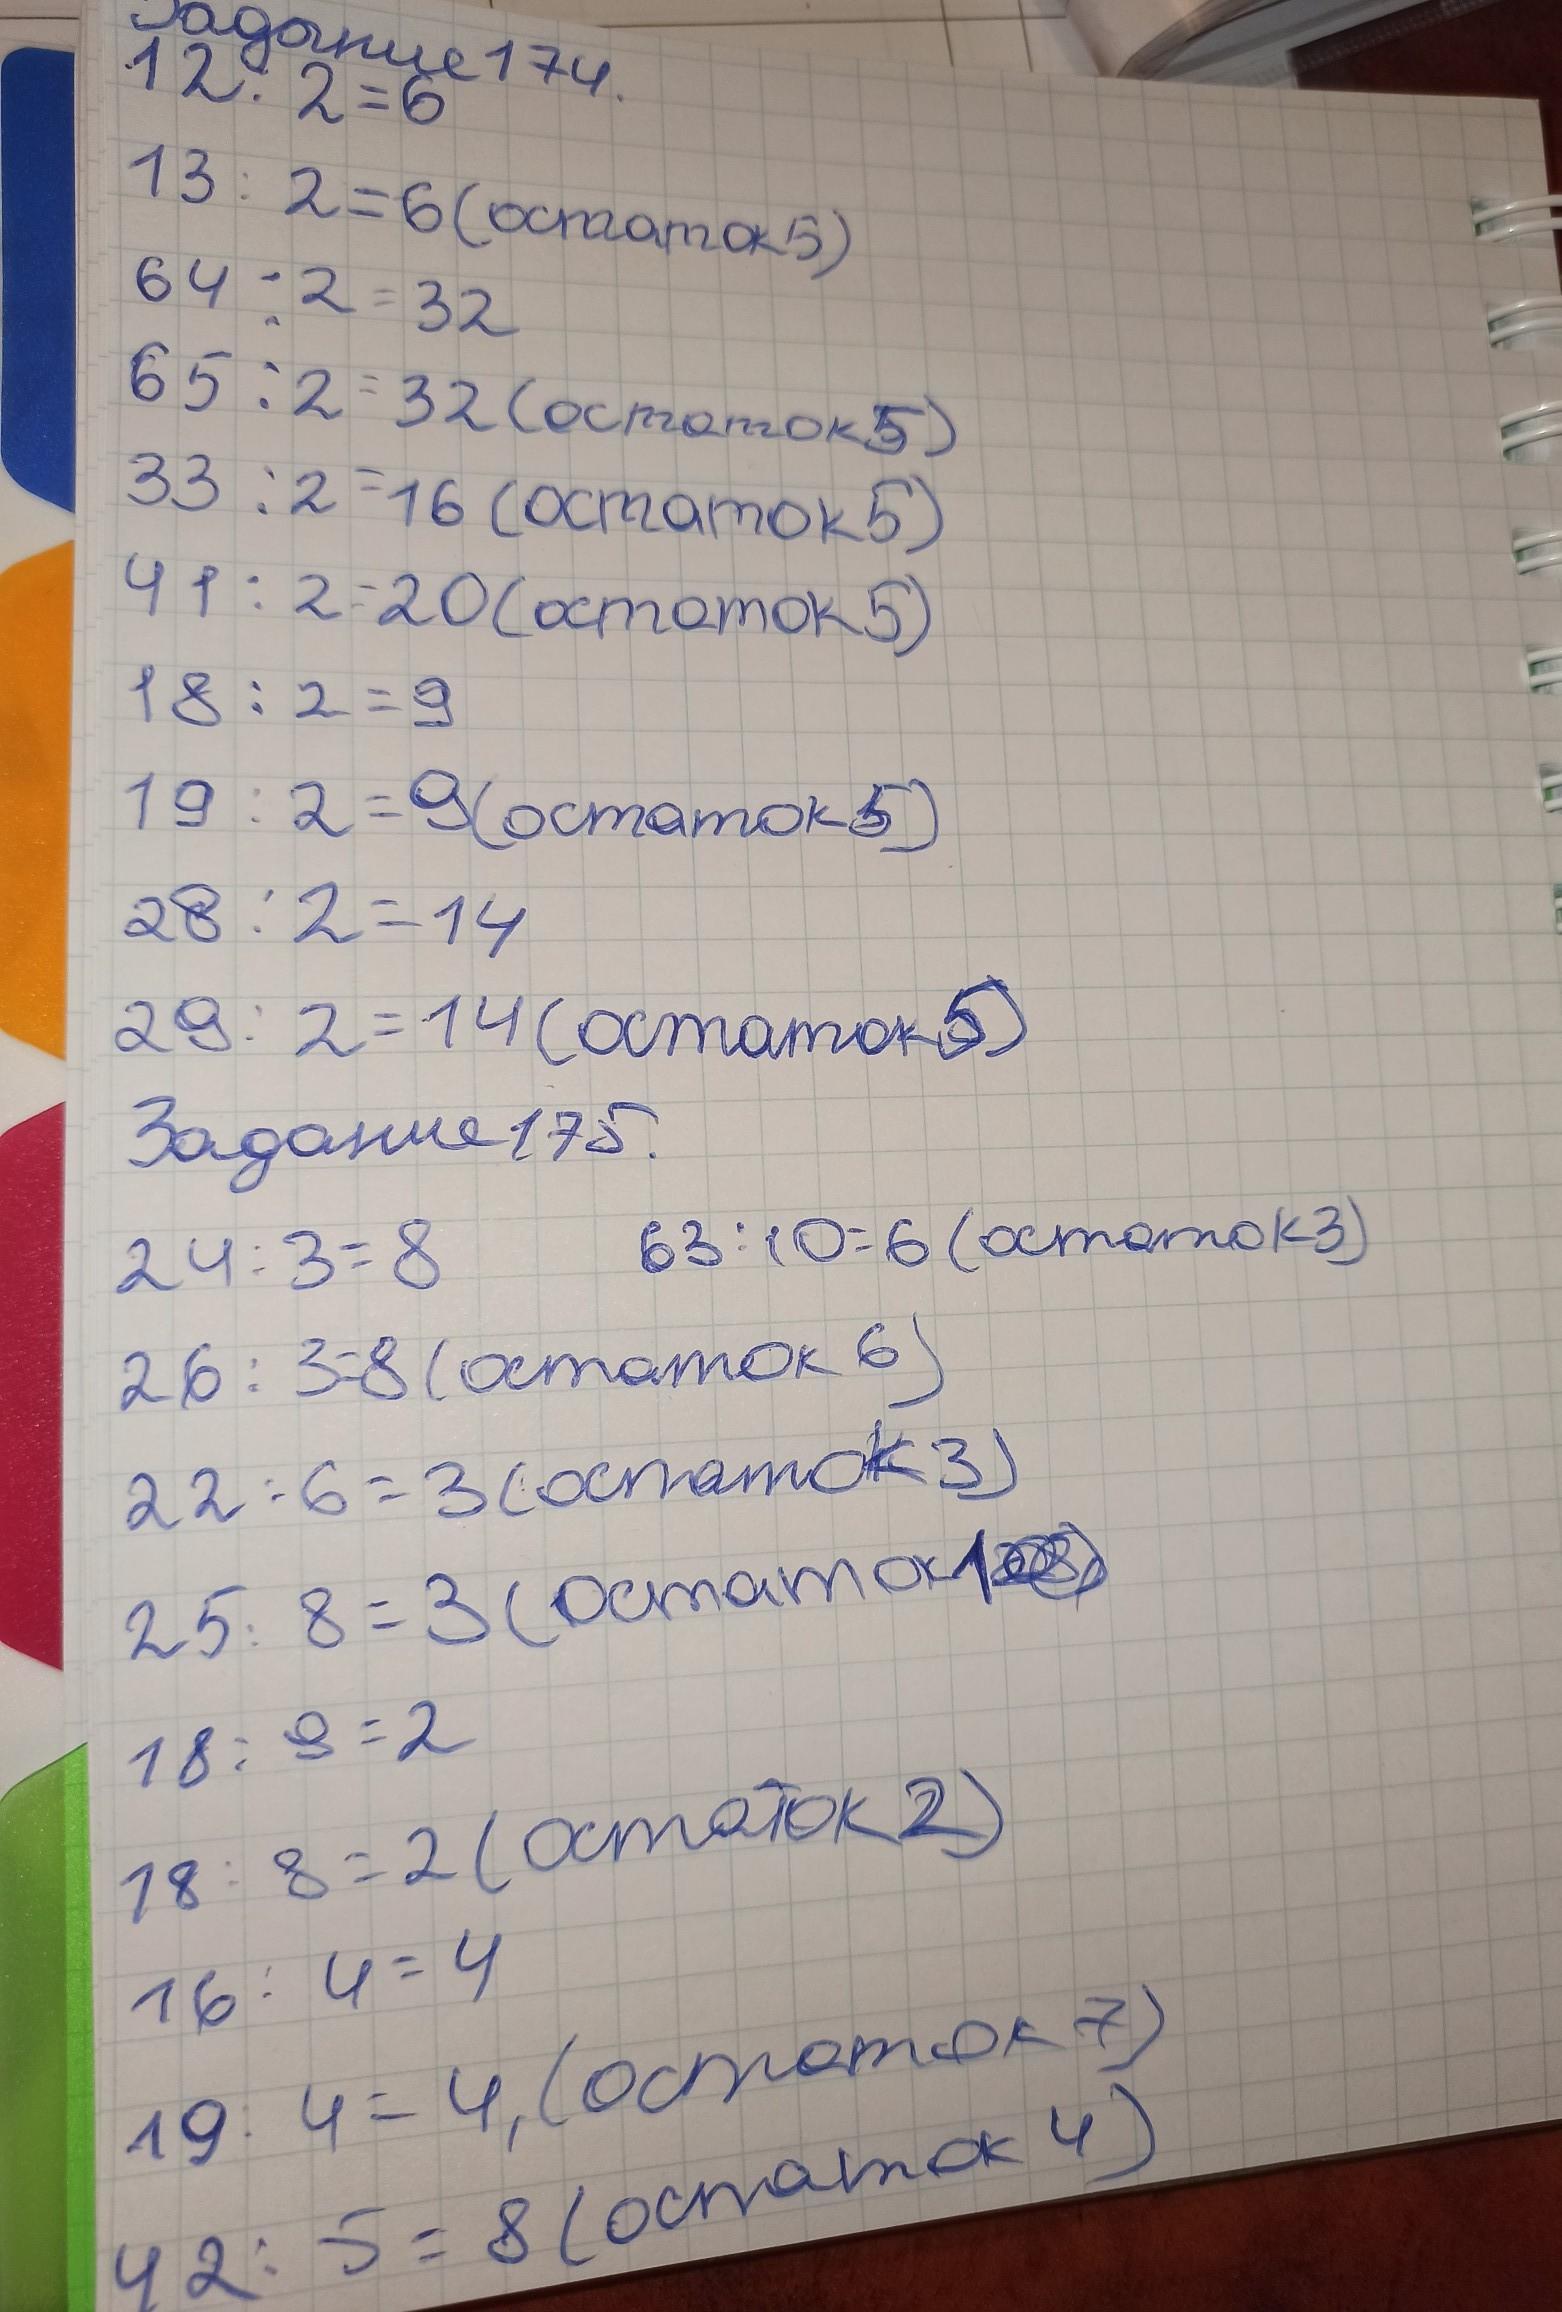 Задание 174.
12 : 2 = 6
13 : 2 = 6 (остаток 5)
64 : 2 = 32
65 : 2 = 32 (остаток 5)
33 : 2 = 16 (остаток 5)
41 : 2 = 20 (остаток 5)
18 : 2 = 9
19 : 2 = 9 (остаток 5)
28 : 2 = 14
29 : 2 = 14 (остаток 5)
Задание 175.
24 : 3 = 8 63 : 10 = 6 (остаток 3)
26 : 3 = 8 (остаток 6)
22 : 6 = 3 (остаток 3)
25 : 8 = 3 (остаток 1)
18 : 9 = 2
18 : 8 = 2 (остаток 2)
16 : 4 = 4
19 : 4 = 4, (остаток 7)
42 : 5 = 8 (остаток 4)